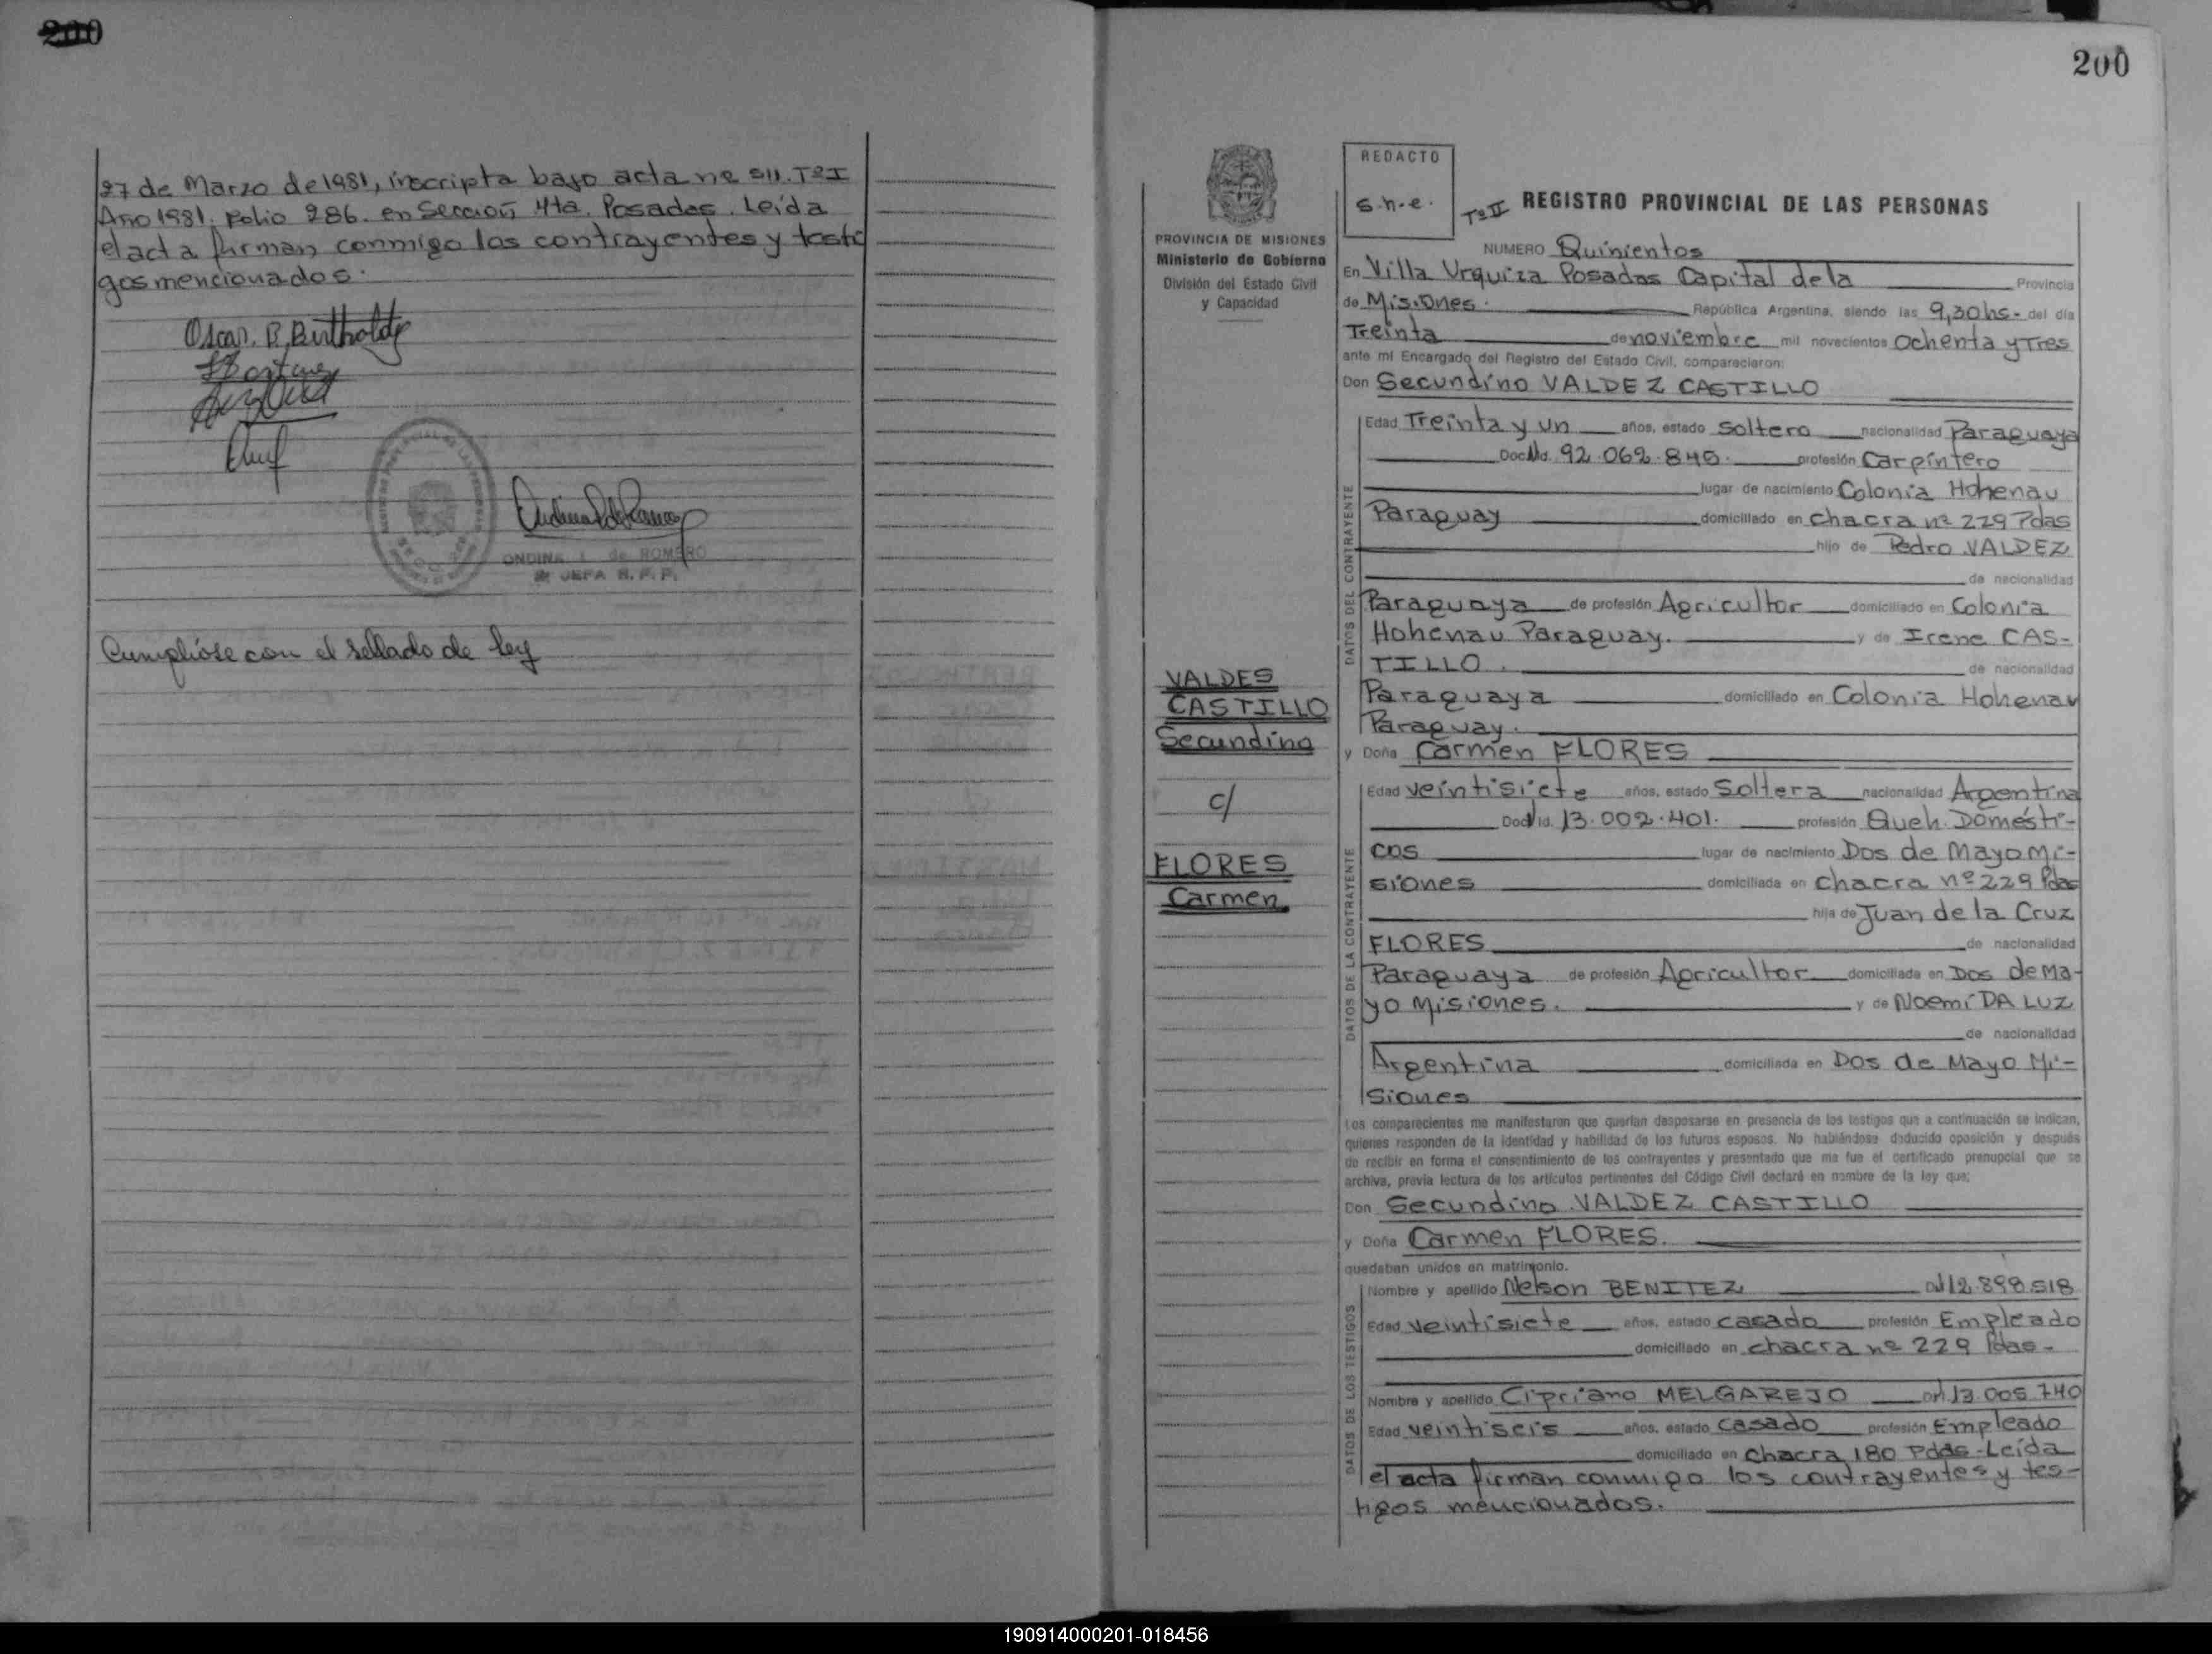 200
27 de Marzo de 1981, inscripta bajo acta nº 511. Tº I
Año 1981. Folio 286. en Sección 4ta. Posadas. Leída
el acta firman conmigo los contrayentes y testi
gos mencionados.
Oscar. R. Bertholdy
ONDINA de ROMERO
JEFA R. P. P.
Cumplióse con el sellado de ley
200
PROVINCIA DE MISIONES
Ministerio de Gobierno
División del Estado Civil
y Capacidad
VALDES
CASTILLO
Secundino
c/
FLORES
Carmen
REDACTO
S.h.e.
Tº II REGISTRO PROVINCIAL DE LAS PERSONAS
NUMERO Quinientos
En Villa Urquiza Posadas Capital de la Provincia
de Misiones. República Argentina, siendo las 9,30 hs- del día
Treinta de noviembre mil novecientos Ochenta y Tres
ante mí Encargado del Registro del Estado Civil, comparecieron:
Don Secundino VALDEZ CASTILLO
DATOS DEL CONTRAYENTE
Edad Treinta y un años, estado soltero nacionalidad Paraguaya
Doc. Id. 92.062.845. profesión Carpintero
lugar de nacimiento Colonia Hohenau
Paraguay domiciliado en chacra nº 229 Pdas
hijo de Pedro VALDEZ
de nacionalidad
Paraguaya de profesión Agricultor domiciliado en Colonia
Hohenau Paraguay. y de Irene CAS-
TILLO. de nacionalidad
Paraguaya domiciliado en Colonia Hohenau
Paraguay.
y Doña Carmen FLORES
DATOS DE LA CONTRAYENTE
Edad veintisiete años, estado Soltera nacionalidad Argentina
Doc. Id. 13.002.401. profesión Queh. Domésti-
cos lugar de nacimiento Dos de Mayo Mi-
siones domiciliada en chacra nº 229 Pdas
hija de Juan de la Cruz
FLORES de nacionalidad
Paraguaya de profesión Agricultor domiciliada en Dos de Ma-
yo Misiones. y de Noemí DA LUZ
de nacionalidad
Argentina domiciliada en Dos de Mayo Mi-
siones
Los comparecientes me manifestaron que querían desposarse en presencia de los testigos que a continuación se indican,
quienes responden de la identidad y habilidad de los futuros esposos. No habiéndose deducido oposición y después
de recibir en forma el consentimiento de los contrayentes y presentado que me fue el certificado prenupcial que se
archiva, previa lectura de los artículos pertinentes del Código Civil declaré en nombre de la ley que;
Don Secundino VALDEZ CASTILLO
y Doña Carmen FLORES.
quedaban unidos en matrimonio.
DATOS DE LOS TESTIGOS
Nombre y apellido Nelson BENITEZ DNI 12.898.518
Edad veintisiete años, estado casado profesión Empleado
domiciliado en chacra nº 229 Pdas-
Nombre y apellido Cipriano MELGAREJO DNI 13.005.740
Edad veintiseis años, estado casado profesión Empleado
domiciliado en chacra 180 Pdas-Leída
el acta firman conmigo los contrayentes y tes-
tigos mencionados.
190914000201-018456